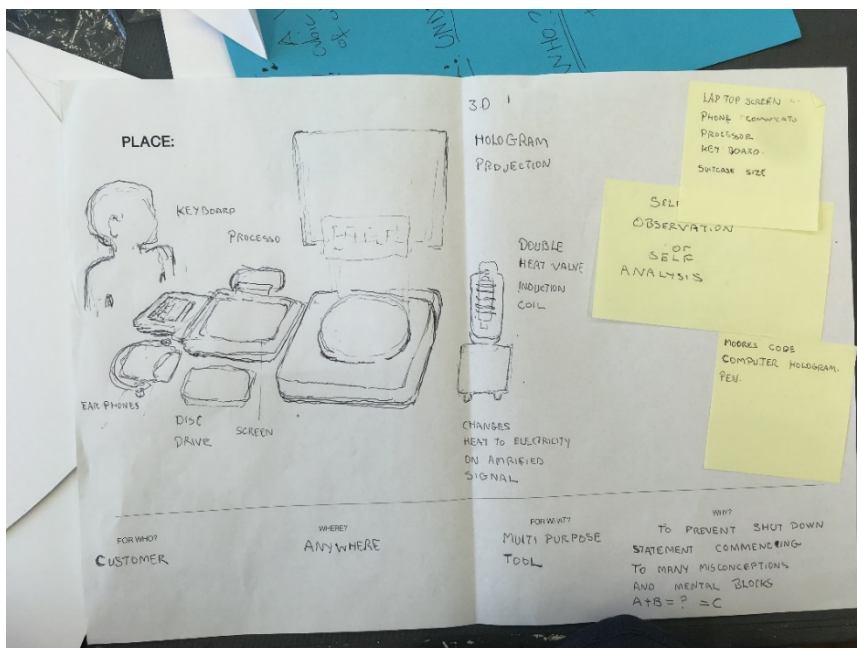 WHO?
PLACE:
3.D
HOLOGRAM
PROJECTION
KEYBOARD
PROCESSO
DOUBLE
HEAT VALVE
INDUCTION
COIL
EAR PHONES
DISC
DRIVE
SCREEN
CHANGES
HEAT TO ELECTRICITY
ON AMRIFIED
SIGNAL
LAP TOP SCREEN
PHONE COMUNICATO
PROCESSOR
KEY BOARD.
SUITCASE SIZE
SELF
OBSERVATION
OR
SELF
ANALYSIS
MOORES CODE
COMPUTER HOLOGRAM.
PEN.
FOR WHO?
CUSTOMER
WHERE?
ANYWHERE
FOR WHAT?
MULTI PURPOSE
TOOL
WHY?
TO PREVENT SHUT DOWN
STATEMENT COMMENCING
TO MANY MISCONCEPTIONS
AND MENTAL BLOCKS
A+B=? =C